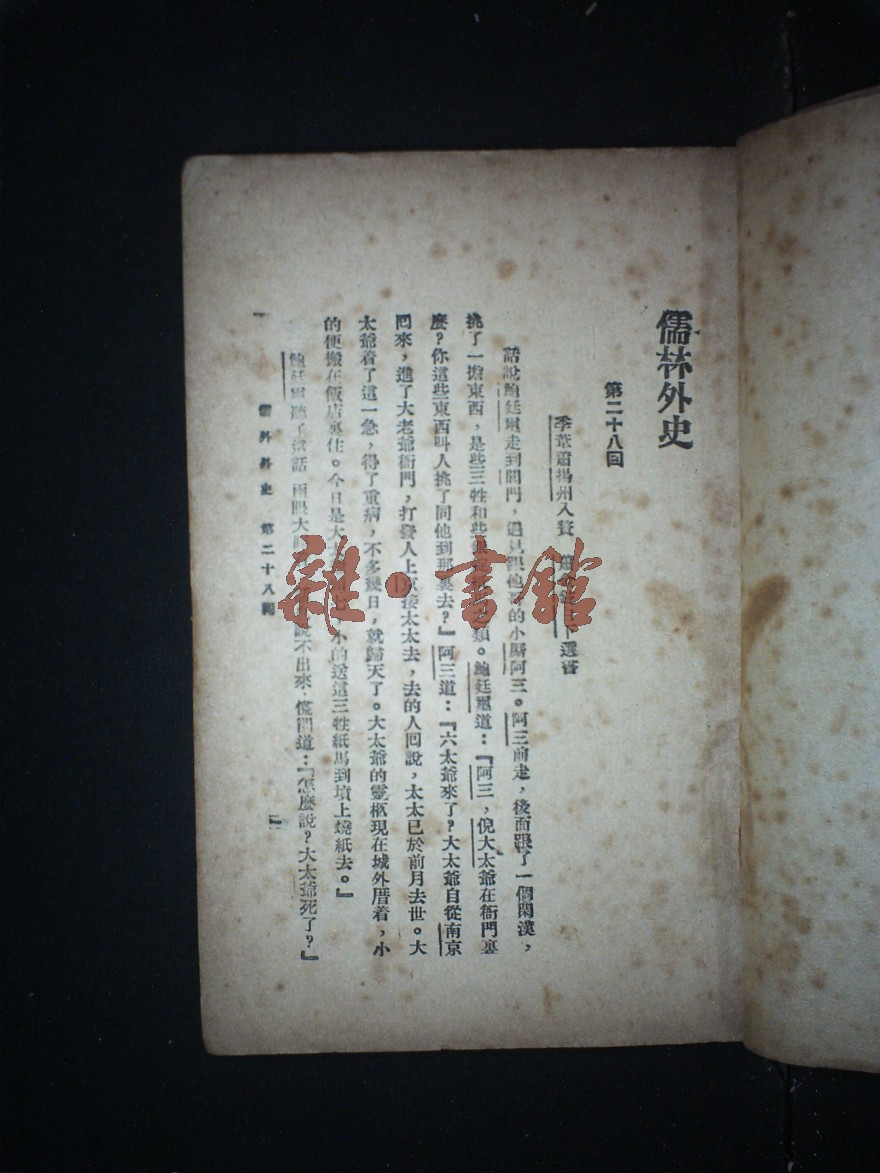 儒林外史
第二十八回
季葦蕭揚州入贅 選書
話說鮑廷璽走到閶門,遇見跟他哥的小廝阿三。阿三前走,後面跟了一個閑漢,
挑了一擔東西,是些三牲和些 類。鮑廷璽道:『阿三,倪大太爺在衙門裏
麼?你這些東西叫人挑了同他到那裏去?』阿三道:『六太爺來了?大太爺自從南京
回來,進了大老爺衙門,打發人上京接太太去,去的人回說,太太已於前月去世。大
太爺着了這一急,得了重病,不多幾日,就歸天了。大太爺的靈柩現在城外厝着,小
的便搬在飯店裏住。今日是大太 小的送這三牲紙馬到墳上燒紙去。』
鮑廷璽聽了這話,兩眼大 說不出來,慌問道:『怎麼說?大太爺死了?』
儒外外史 第二十八回
一
雜·書館